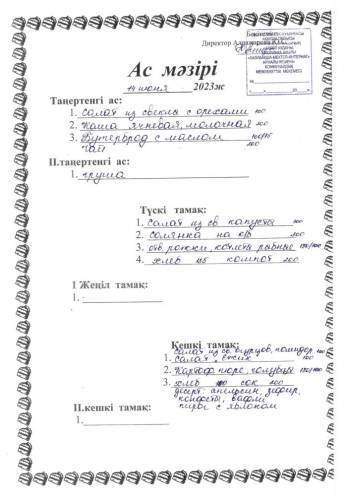 Бекітемін
Директор
Ас мәзірі
14 июня 2023ж
Таңертенгі ас:
1. Салат из свеклы с орехами 100
2. Каша ячневая, молочная 200
3. Бутерброд с маслом
чай
II.таңертенгі ас:
1. груша
Түскі тамақ:
1. салат из св капусты 100
2. солянка на к/б 200
3. отв. рожки, котлеты рыбные
4. хлеб компот 200
I Жеңіл тамақ:
1.
Кешкі тамақ:
салат из св. огурцов, помидор 100
1. салат
2. Картоф. пюре, голубцы
3. хлеб сок 200
десерт: апельсин, зефир,
конфеты, вафли
пирог с яблоком
II.кешкі тамақ:
1.